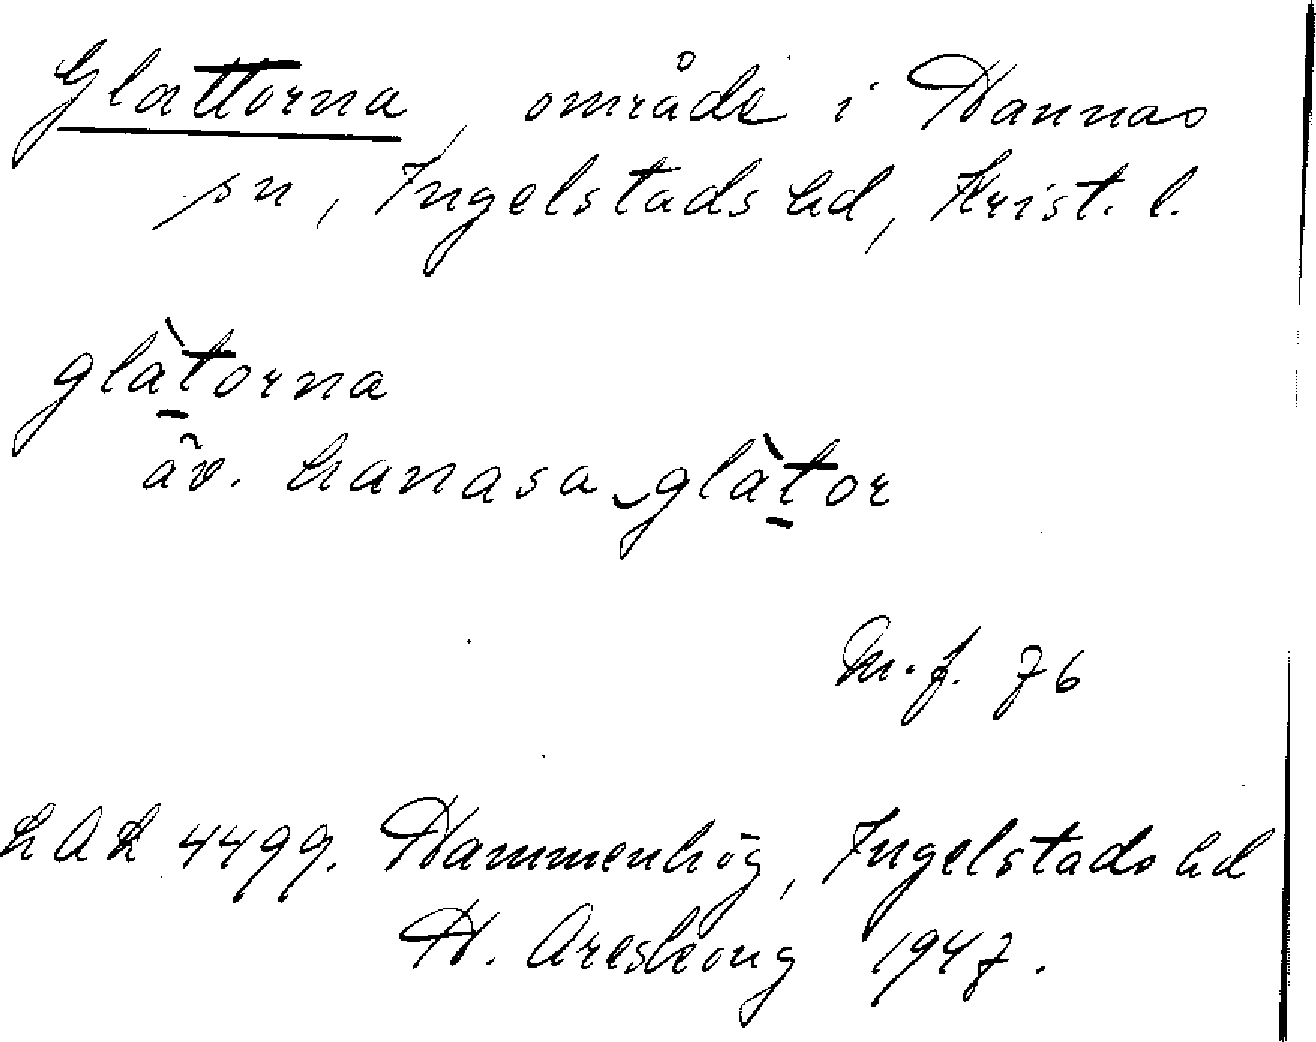 Glattorna, område i Hannas
sn, Ingelstads hd, Krist. l.
glàt̲orna
äv. hanasa‿glàt̲or
M.f. 76
LAL 4499. Hammenhög, Ingelstads hd
H. Areskoug 1947.